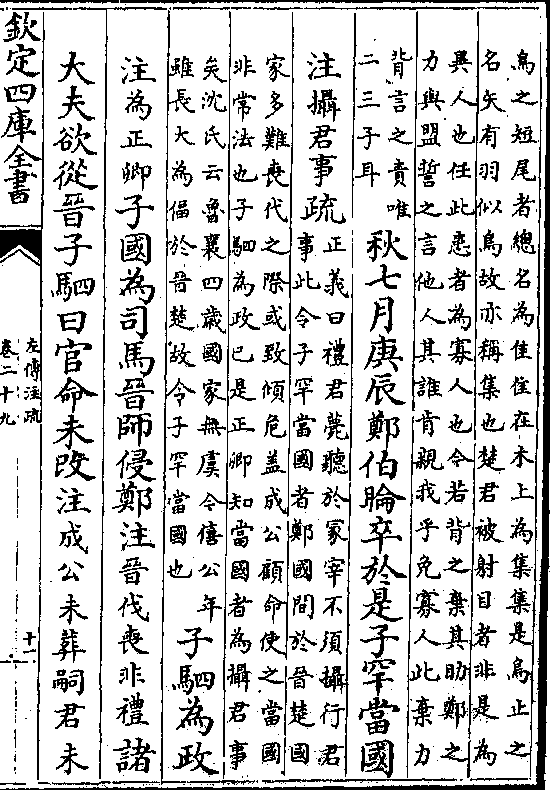 鳥之短尾者總名為隹隹在木上為集集是鳥止之
名矢有羽似鳥故亦稱集也楚君被射目者非是為
異人也任此患者為寡人也令若背之棄其助鄭之
力與盟誓之言他人其誰肯親我乎免寡人此棄力
背言之責唯
二三子耳
秋七月庚辰鄭伯睔卒於是子罕當國
注攝君事疏
正義曰禮君薨聽於冢宰不須攝行君
事此令子罕當國者鄭國間於晉楚國
家多難喪代之際或致傾危盖成公顧命使之當國
非常法也子駟為政已是正卿知當國者為攝君事
矣沈氏云魯襄四歲國家無虞令僖公年
雖長大為偪於晉楚故令子罕當國也
子駟為政
注為正卿子國為司馬晉師侵鄭注晉伐喪非禮諸
大夫欲從晉子駟曰官命未改注成公未葬嗣君未
欽定四庫全書
左傳注疏
卷二十九
十一